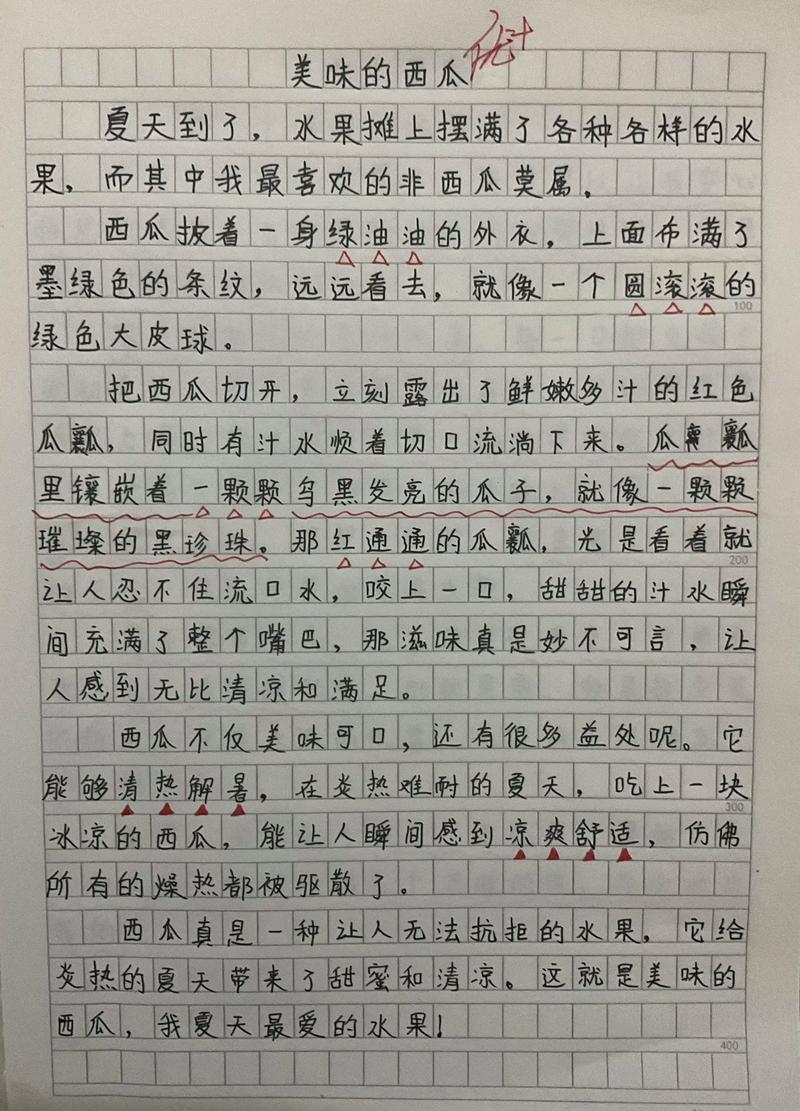 美味的西瓜 优+
夏天到了，水果摊上摆满了各种各样的水
果，而其中我最喜欢的非西瓜莫属。
西瓜披着一身绿油油的外衣，上面布满了
墨绿色的条纹，远远看去，就像一个圆滚滚的
100
绿色大皮球。
把西瓜切开，立刻露出了鲜嫩多汁的红色
瓜瓤，同时有汁水顺着切口流淌下来。瓜瓤
里镶嵌着一颗颗乌黑发亮的瓜子，就像一颗颗
璀璨的黑珍珠。那红通通的瓜瓤，光是看着就
200
让人忍不住流口水，咬上一口，甜甜的汁水瞬
间充满了整个嘴巴，那滋味真是妙不可言，让
人感到无比清凉和满足。
西瓜不仅美味可口，还有很多益处呢。它
能够清热解暑，在炎热难耐的夏天，吃上一块
300
冰凉的西瓜，能让人瞬间感到凉爽舒适，仿佛
所有的燥热都被驱散了。
西瓜真是一种让人无法抗拒的水果，它给
炎热的夏天带来了甜蜜和清凉。这就是美味的
西瓜，我夏天最爱的水果！
400